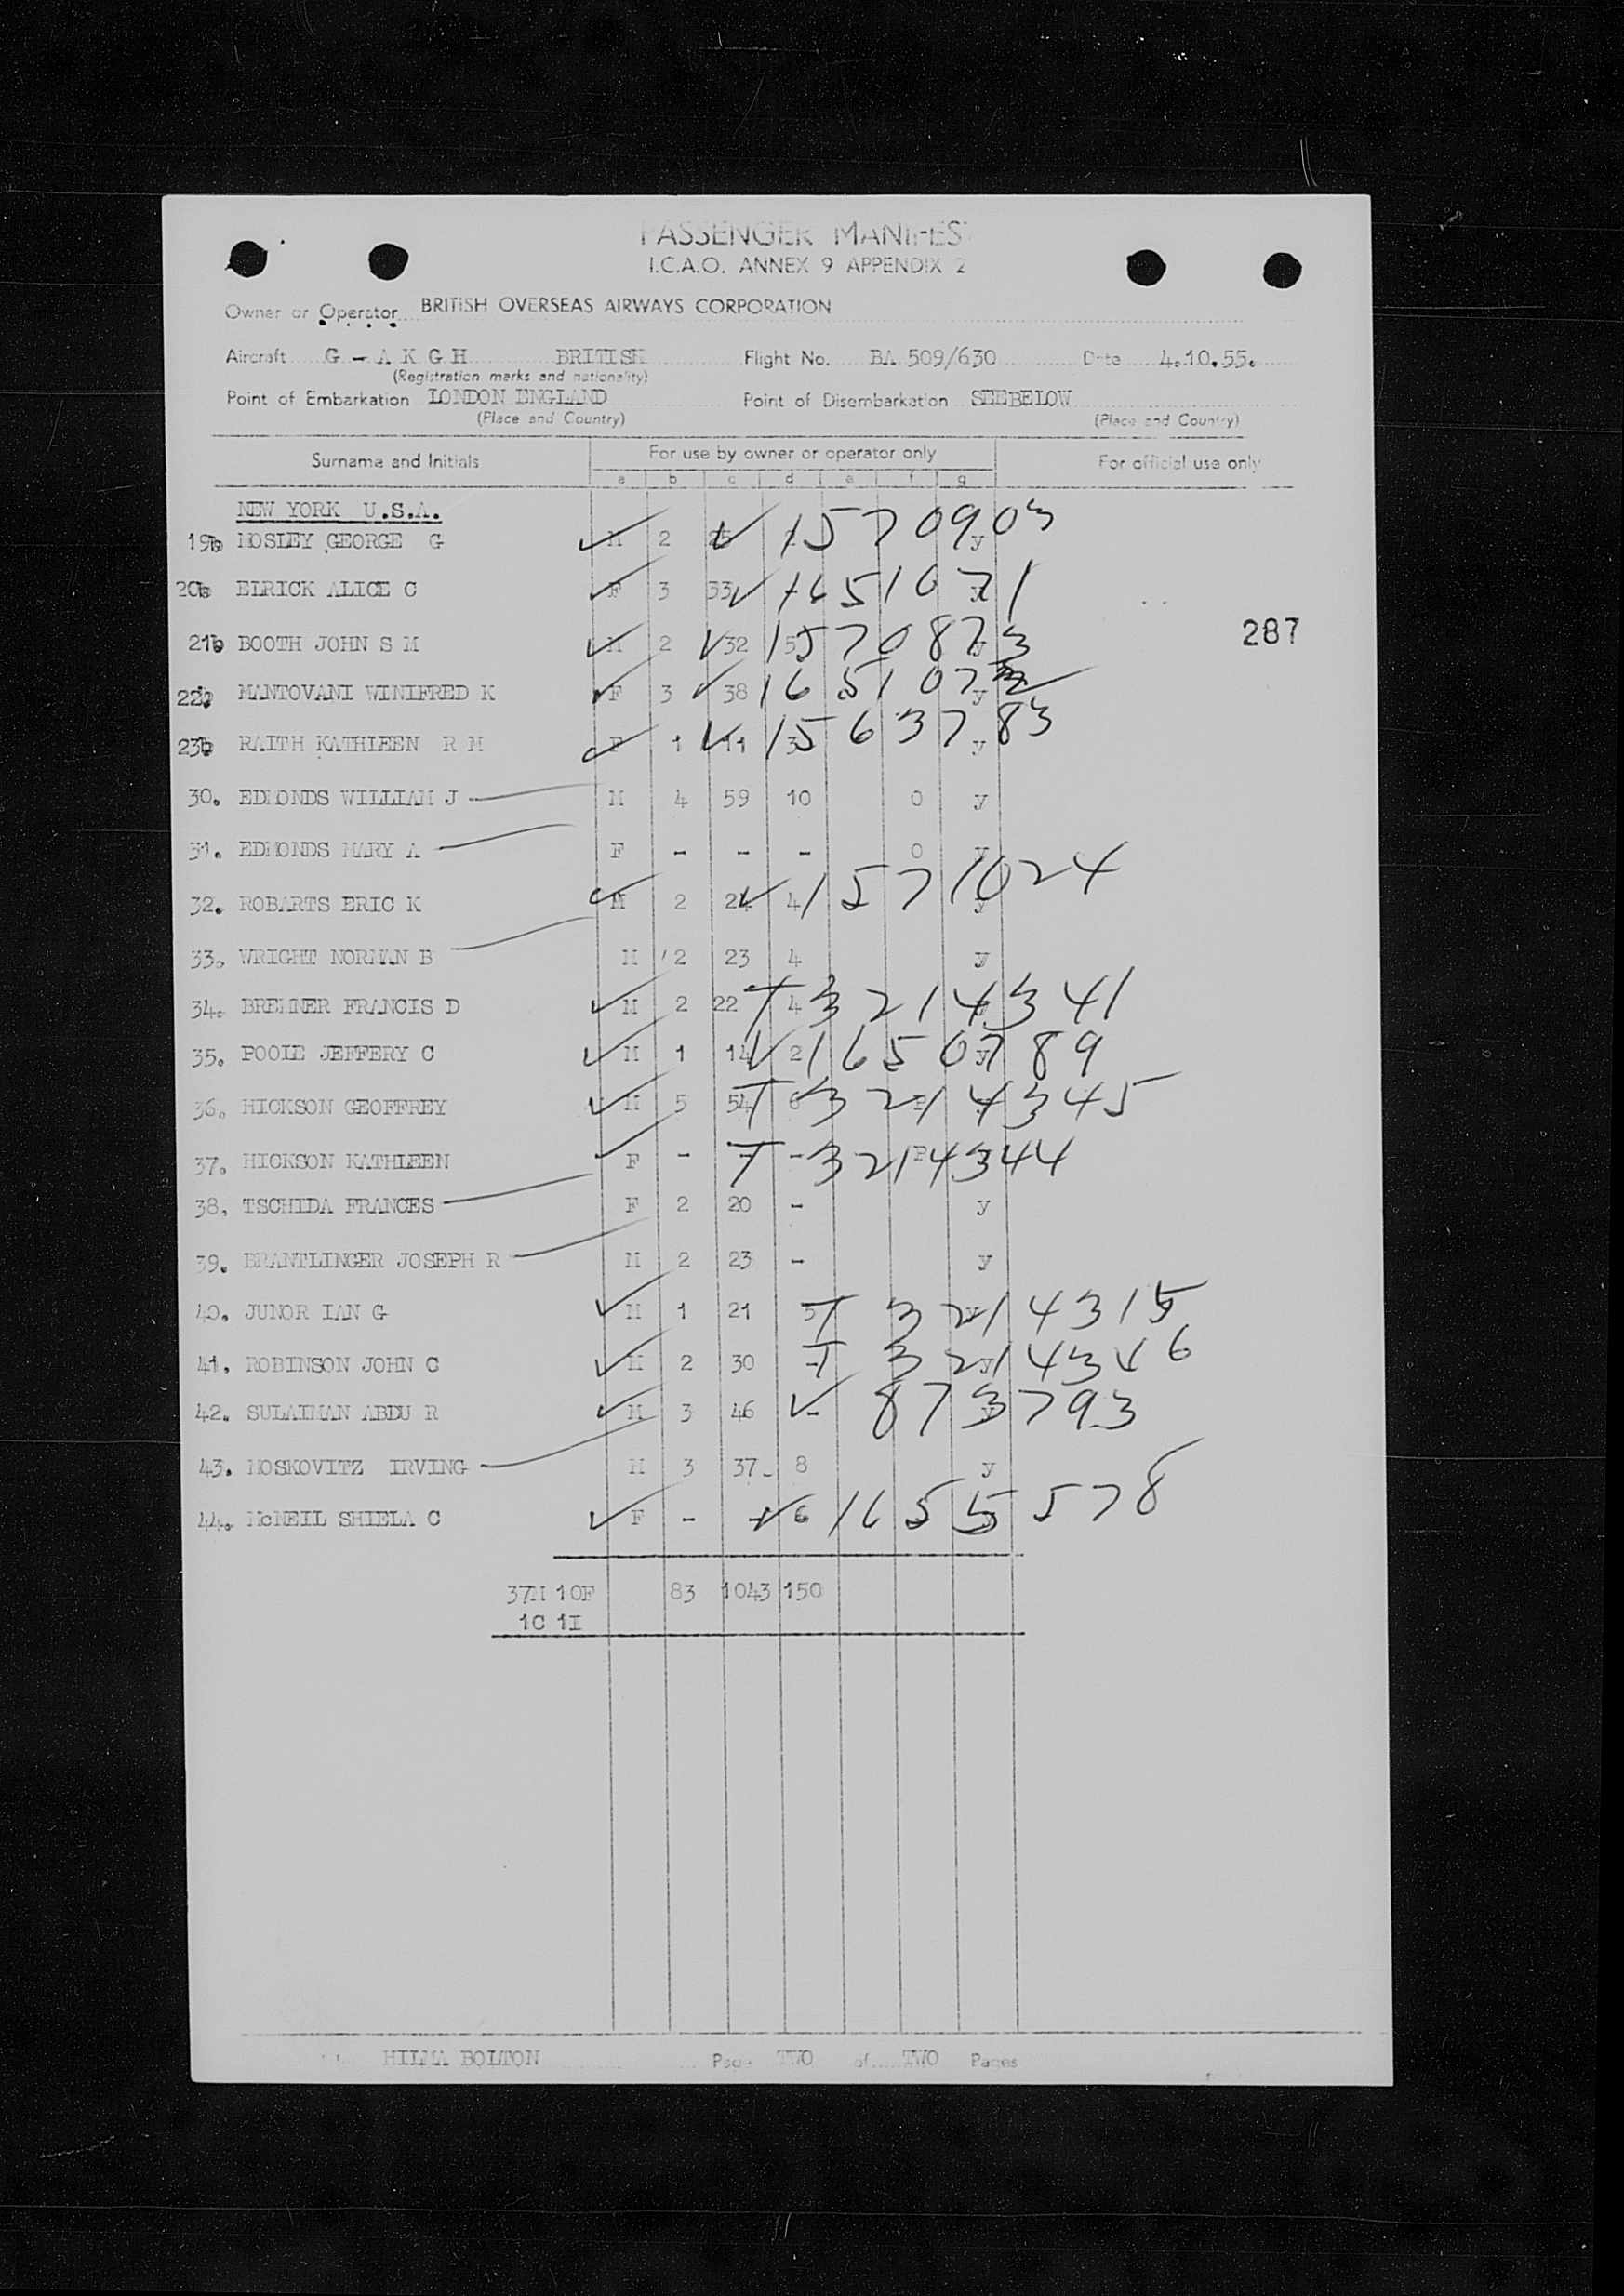 PASSENGER MANIFES
I.C.A.O. ANNEX 9 APPENDIX 2
Owner or Operator BRITISH OVERSEAS AIRWAYS CORPORATION
Aircraft G - A K G H BRITISH Flight No. BA 509/630 Date 4.10.55.
(Registration marks and nationality)
Point of Embarkation LONDON ENGLAND Point of Disembarkation SEEBELOW
(Place and Country) (Place and Country)
Surname and Initials For use by owner or operator only For official use only
a b c d e f g
NEW YORK U.S.A.
19. MOSLEY GEORGE G M 2 25 y 1570903
20. EIRICK ALICE C F 3 33 - y 1651071
21. BOOTH JOHN S M M 2 32 5 y 1570873
287
22. MANTOVANI WINIFRED K F 3 38 y 165107
23. RAITH KATHLEEN R M F 1 11 3 y 1563783
30. EDMONDS WILLIAM J M 4 59 10 0 y
31. EDMONDS MARY A F - - - 0 y
32. ROBARTS ERIC K M 2 24 4 y 1571024
33. WRIGHT NORMAN B M 2 23 4 y
34. BREMNER FRANCIS D M 2 22 4 T 3214341
35. POOLE JEFFERY C M 1 14 2 y 1650789
36. HICKSON GEOFFREY M 5 54 6 T 3214345
37. HICKSON KATHLEEN F - - - T 3214344
38. TSCHIDA FRANCES F 2 20 - y
39. BRANTLINGER JOSEPH R M 2 23 - y
40. JUNOR IAN G M 1 21 5 y T 3214315
41. ROBINSON JOHN C M 2 30 - y T 3214346
42. SULAIMAN ABDU R M 3 46 - y 873793
43. MOSKOVITZ IRVING M 3 37 8 y
44. McNEIL SHIELA C F - - 6 1655578
37M 10F 83 1043 150
1C 1I
HILMA BOLTON Page TWO of TWO Pages